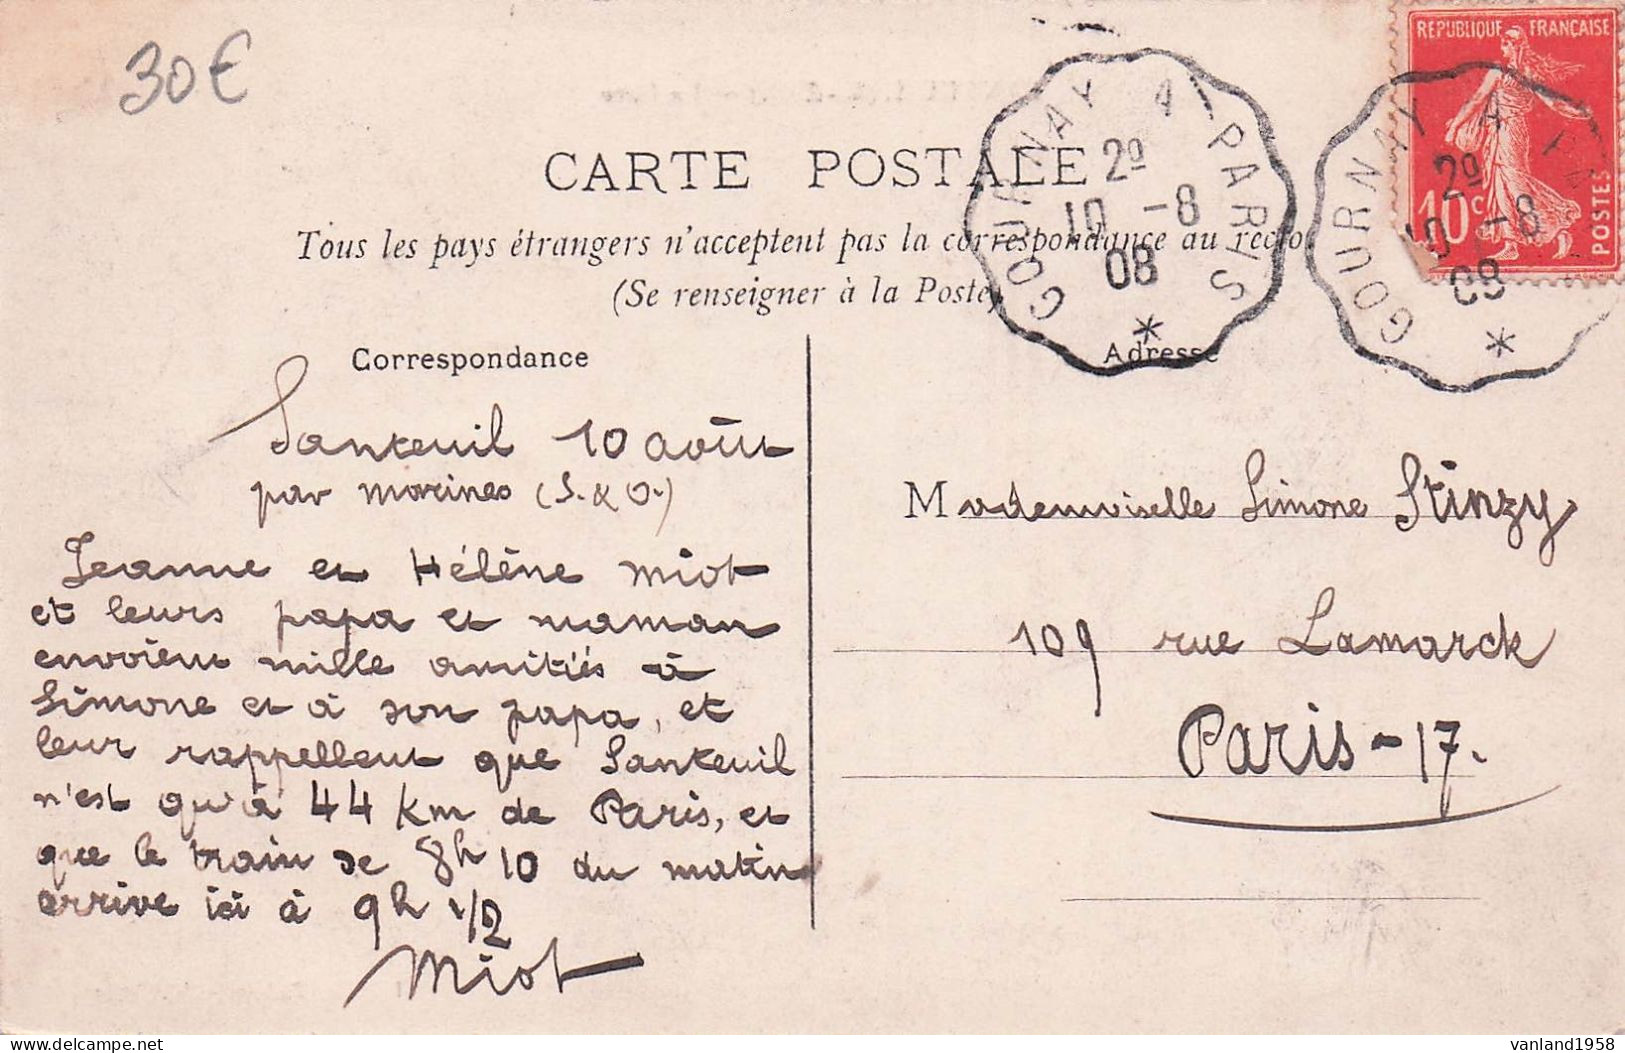 30€
REPUBLIQUE FRANÇAISE
10c
POSTES
GOURNAY A PARIS
2º
10 -8
08
*
GOURNAY A PA
2º
10 -8
08
*
CARTE POSTALE
Tous les pays étrangers n'acceptent pas la correspondance au recto
(Se renseigner à la Poste)
Correspondance
Adresse
Santeuil 10 août
par Marines (S. & O.)
Jeanne et Hélène Miot
et leurs papa et maman
envoient mille amitiés à
Simone et à son papa, et
leur rappellent que Santeuil
n'est qu'à 44 km de Paris, et
que le train de 8h 10 du matin
arrive ici à 9h 1/2
Miot
Mademoiselle Simone Stinzy
109 rue Lamarck
Paris-17.
vanland1958